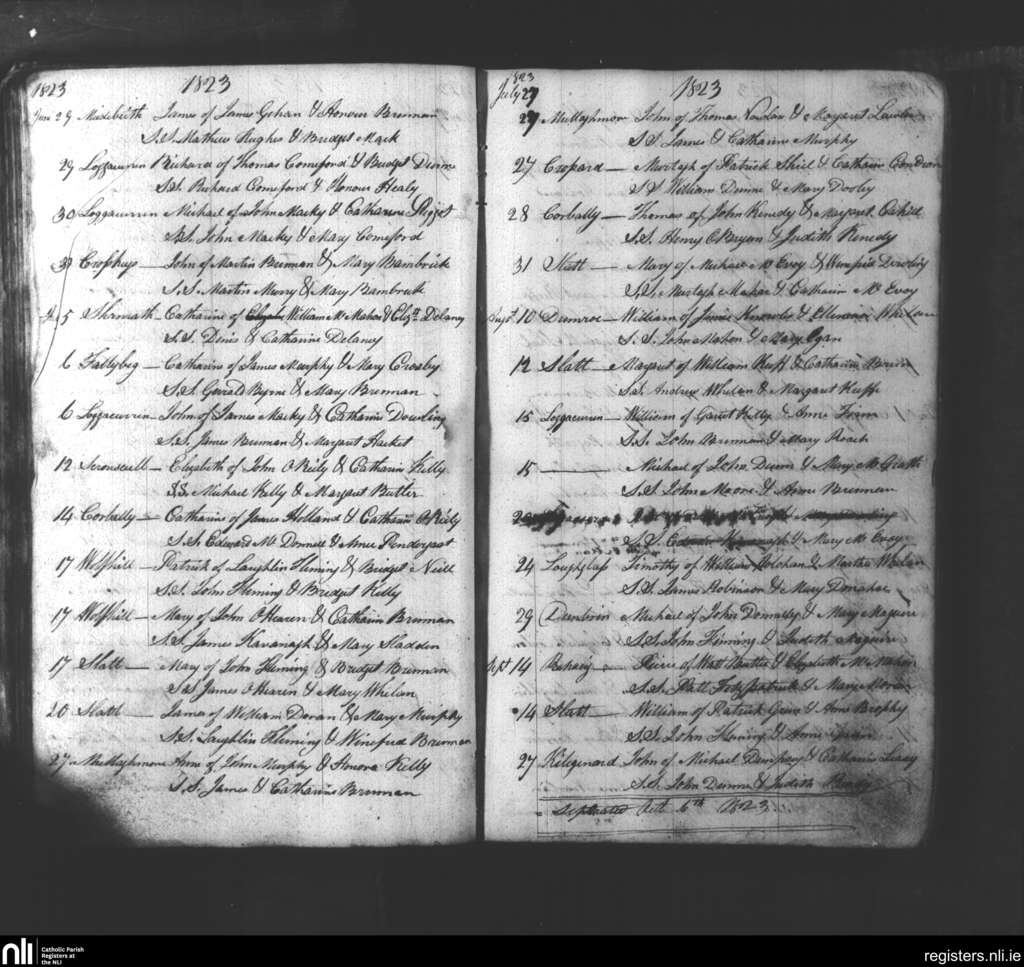 1823
1823
June 29 James of James Gehan & Honour Brennan
S.S. Mathew Hughes & Bridget Mack
29 Loggacurren Richard of Thomas Comeford & Bridget Dunne
S.S. Richard Comeford & Honour Healy
30 Loggacurren Michael of John Macky & Catharine
S.S. John Macky & Mary Comeford
John of Martin Brennan & Mary Bambrick
S.S. Martin Murry & Mary Bambrick
5 Catharine of William Mc Mahon & Eliza Delaney
S.S. Denis & Catharine Delaney
6 Fallybeg — Catharine of James Murphy & Mary Crosby
S.S. Gerald Byrne & Mary Brennan
6 Loggacurren John of James Macky & Catharine Dowling
S.S. James Brennan & Margaret Hacket
12 — Elizabeth of John O Reily & Catharin Kelly
S.S. Michael Kelly & Margaret Butler
14 Corbally — Catharine of James Holland & Catharin O Riely
S.S. Edward Mc Donnell & Anne Pendergast
17 Wolfhill — Patrick of Laughlin Fleming & Bridget Neill
S.S. John Fleming & Bridget Kelly
17 Wolfhill — Mary of John O Hearen & Catharin Brennan
S.S. James Kavanagh & Mary Sladden
17 Slatt — Mary of John Fleming & Bridget Brennan
S.S. James O Hearen & Mary Whelan
20 Slatt — James of William Doran & Mary Murphy
S.S. Laughlin Fleming & Winefred Brennan
27 Mullaghmore Anne of John Murphy & Honora Kelly
S.S. James & Catharine Brennan
1823
July 27
1823
27 Mullaghmore John of Thomas & Margaret Lawler
S.S. James & Catharin Murphy
27 Cropard — Murtagh of Patrick Shiel & Catharin Condron
S.S. William Dunne & Mary Dooly
28 Corbally — Thomas of John Kenedy & Margaret Cahill
S.S. Henry O Bryan & Judith Kenedy
31 Slatt — Mary of Michael Mc Evoy & Dowling
S.S. Murtagh Mahar & Catharin Mc Evoy
Augst. 10 William of James Knowles & Elleanor Whelan
S.S. John Mahon & Mary Egan
12 Slatt — Margaret of William Huff & Catharin
S.S. Andrew Whelan & Margaret Huff
15 Loggacurren — William of Garret Kelly & Anne
S.S. John Brennan & Mary Roach
15 — Michael of John Dunn & Mary Mc Grath
S.S. John Moore & Anne Brennan
S.S. & Mary Mc Evoy
24 Timothy of William Holohan & Martha Whelan
S.S. James Robinson & Mary Donahoe
29 Michael of John Donnelly & Mary Maguire
S.S. John Finning & Judith Maguire
Sept 14 of Watt Butler & Elizabeth Mc Mahon
S.S. Patt Fitzpatrick & Mary Moran
14 Slatt — William of Patrick & Anne Brophy
S.S. John Fleming & Anne
27 Kilgenard John of Michael Dempsey & Catharin
S.S. John Dunne & Judith
Oct. 6th 1823
nli
Catholic Parish
Registers at
the NLI
registers.nli.ie